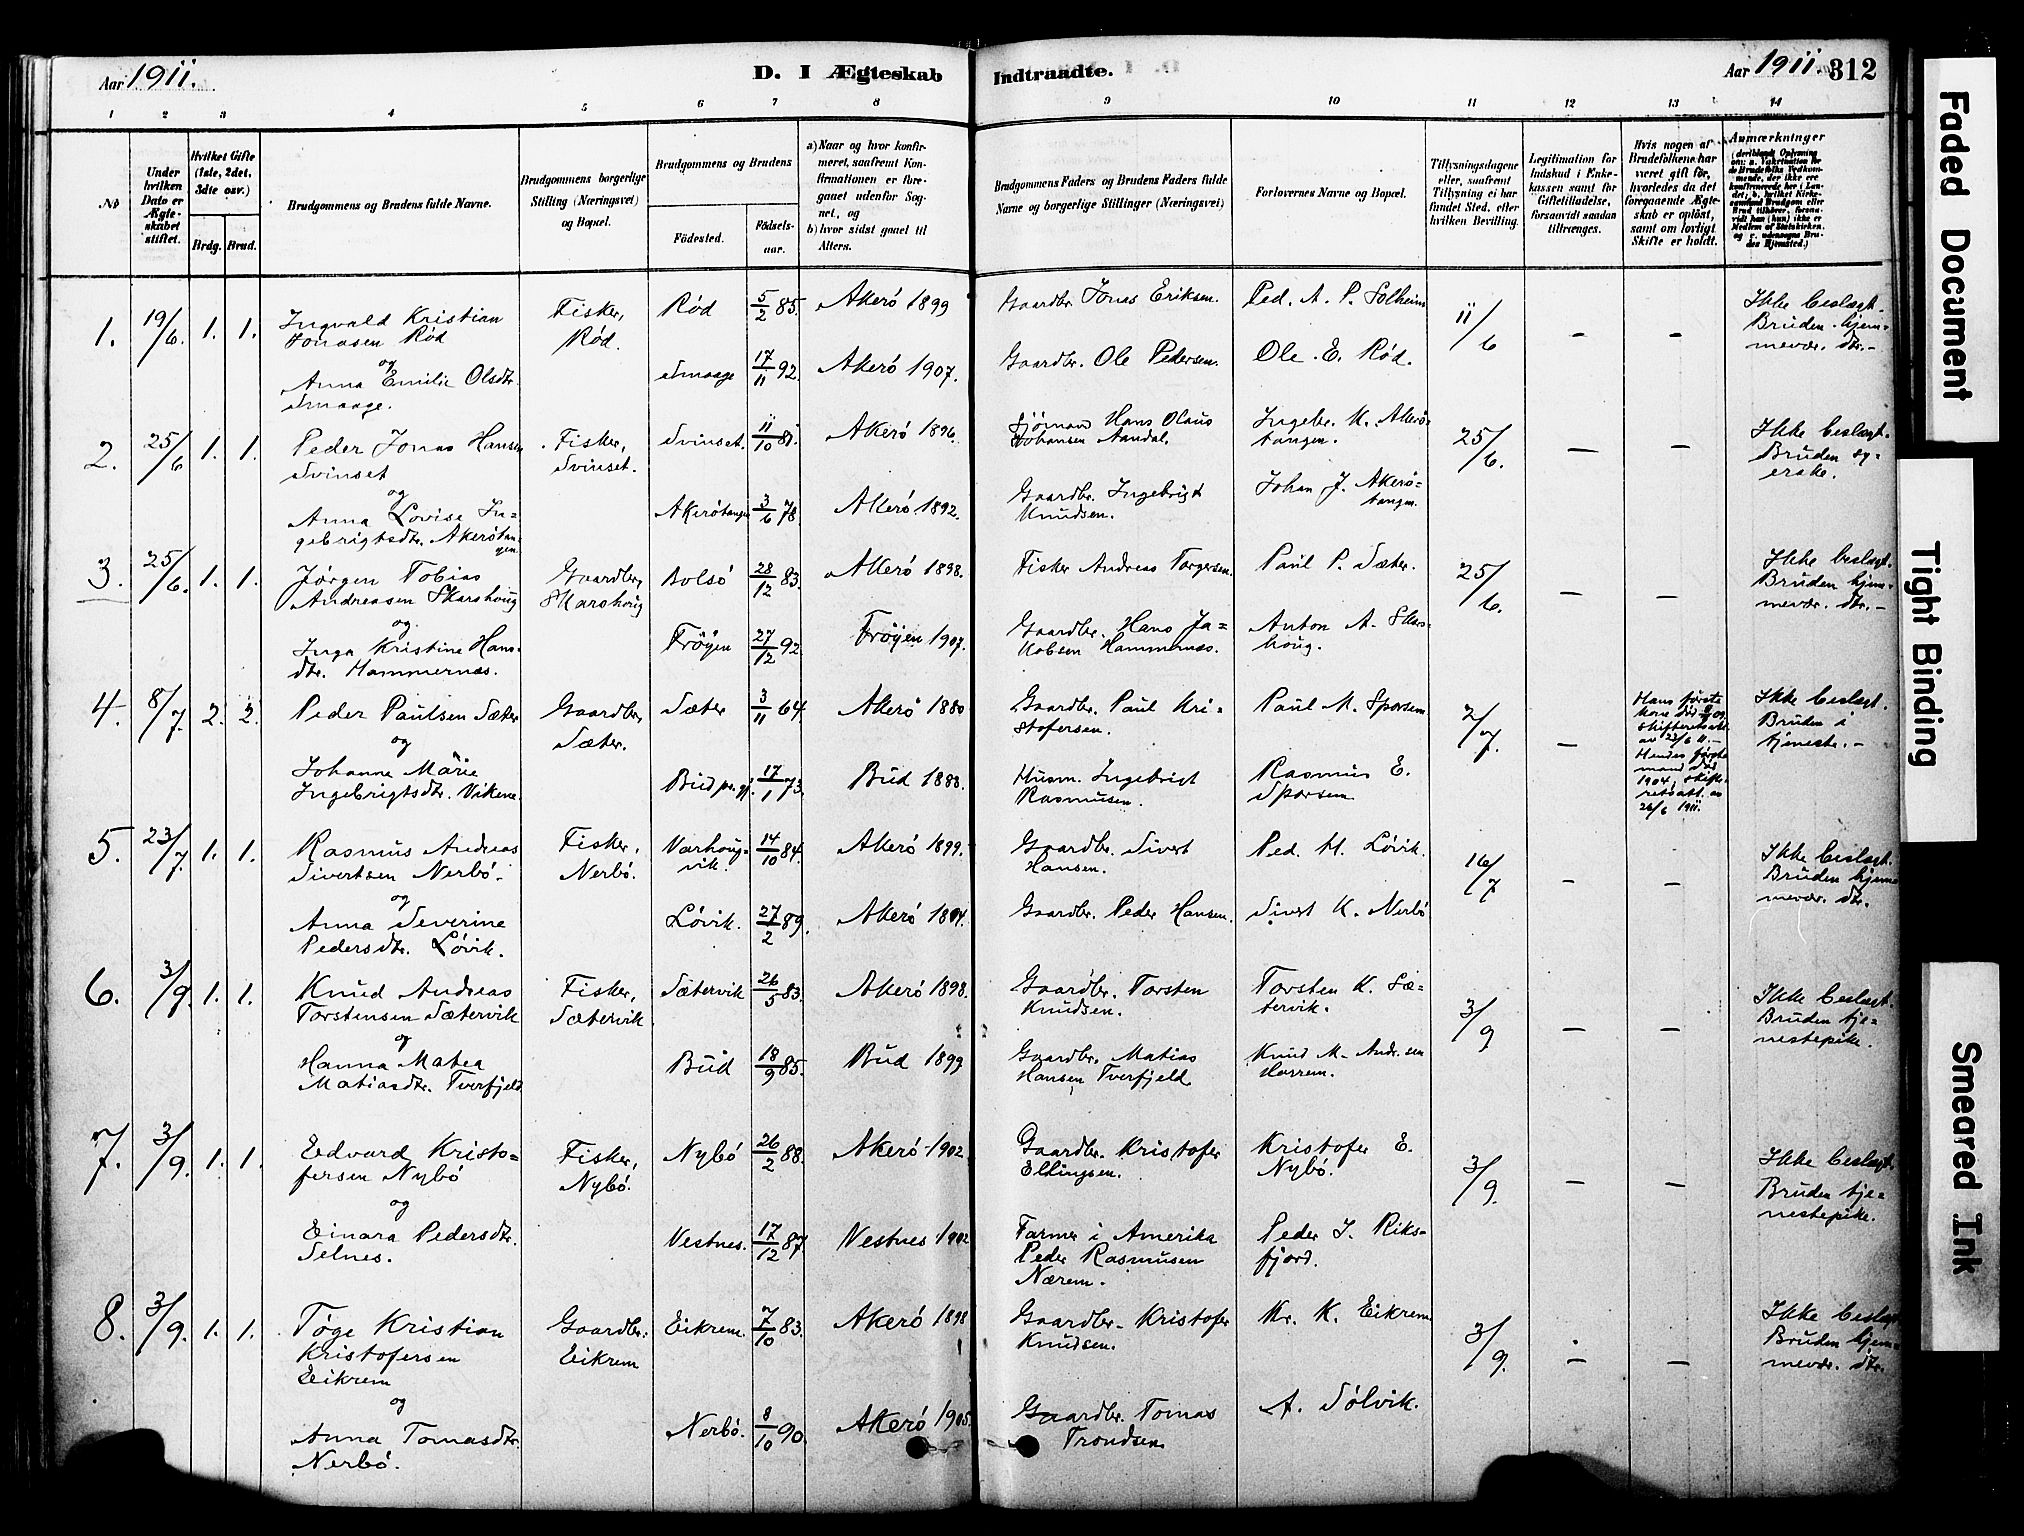 Aar 1911.
D. I Ægteskab
Indtraadte.
Aar 1911. 312
1 2 3 4 5 6 7 8 9 10 11 12 13 14
No
Under hvilken Dato er Ægteskabet stiftet.
Hvilket Gifte (1ste, 2det, 3die osv.)
Brdg. Brud.
Brudgommens og Brudens fulde Navne.
Brudgommens borgerlige Stilling (Næringsvei) og Bopæl.
Brudgommens og Brudens
Födested.
Födsels-aar.
a) Naar og hvor konfirmeret, saafremt Konfirmationen er foregaaet udenfor Sognet, og
b) hvor sidst gaaet til Alters.
Brudgommens Faders og Brudens Faders fulde Navne og borgerlige Stillinger (Næringsvei)
Forlovernes Navne og Bopæl.
Tillysningsdagene eller, saafremt Tillysning ei har fundet Sted, efter hvilken Bevilling.
Legitimation for Indskud i Enkekassen samt for Giftetilladelse, forsaavidt saadan tiltrænges.
Hvis nogen af Brudefolkene har været gift før, hvorledes da det foregaaende Ægteskab er oplöst, samt om lovligt Skifte er holdt.
Anmærkninger
1. 19/6. 1. 1. Ingvald Kristian Jonasen Rød
Fisker, Rød. Rød 5/2 85. Akerö 1899
Gaardbr. Jonas Eriksen. Ped. A. P. Solheim 11/6 – –
Ikke beslægt. Bruden hjemmevær. dtr. –
og
Anna Emilie Olsdtr. Smaage.
Smaage 17/11 92. Akerö 1907. Gaardbr. Ole Pedersen. Ole E. Rød.
2. 25/6 1. 1. Peder Jonas Hansen Svinset
Fisker, Svinset. Svinset. 11/10 81. Akerö 1896.
Sjömand Hans Olaus Johansen Aandal. Ingebr. K. Akerötangen. 25/6. – –
Ikke beslægt. Bruden syerske.
og
Anna Lovise Ingebrigtsdtr. Akerötangen
Akerötangen 3/6 78. Akerö 1892. Gaardbr. Ingebrigt Knudsen. Johan J. Akerötangen.
3. 25/6. 1. 1. Jørgen Tobias Andreasen Skarshoug
Gaardbr, Skarshoug Bolsö 28/12 83. Akerö 1898.
Fisker Andreas Torgersen. Paul P. Sæter. 25/6. – –
Ikke beslægt. Bruden hjemmevær. dtr. –
og
Inga Kristine Hansdtr. Hammernæs.
Fröyen 27/12 92. Fröyen 1907. Gaardbr. Hans Jakobsen Hammernæs. Anton A. Skarshoug.
4. 8/7. 2. 2. Peder Paulsen Sæter
Gaardbr, Sæter. Sæter 3/11 64. Akerö 1880
Gaardbr. Paul Kristofersen. Paul M. Sporsem 2/7. –
Hans første kone død skifteretsatt. av 23/6 11. – Hendes første mand død 1904, skifteretsatt. av 26/6 1911.
Ikke beslægt. Bruden i tjeneste. –
og
Johanne Marie Ingebrigtsdtr. Vikene.
Bud pr.gj. 17/1 73. Bud 1888. Husm. Ingebrigt Rasmusen. Rasmus E. Sporsem
5. 23/7. 1. 1. Rasmus Andreas Sivertsen Nerbö.
Fisker, Nerbö. Varhougvik. 14/10 84. Akerö 1899.
Gaardbr. Sivert Hansen. Ped. H. Lövik. 16/7 – –
Ikke beslægt. Bruden hjemmevær. dtr.
og
Anna Severine Pedersdtr. Lövik.
Lövik. 27/2 89. Akerö 1904. Gaardbr. Peder Hansen. Sivert K. Nerbö
6. 3/9. 1. 1. Knud Andreas Torstensen Sætervik
Fisker, Sætervik Sætervik 26/5 83. Akerö 1898.
Gaardbr. Torsten Knudsen. Torsten K. Sætervik. 3/9 – –
Ikke beslægt. Bruden tjenestepike.
og
Hanna Matea Matiasdtr. Tverfjeld
Bud 18/9 85. Bud 1899 Gaardbr. Matias Hansen Tverfjeld Knud M. Andr.sen Harrem.
7. 3/9. 1. 1. Edvard Kristofersen Nybö
Fisker, Nybö. Nybö 26/2 88. Akerö 1902.
Gaardbr. Kristofer Ellingsen. Kristofer E. Nybö. 3/9. – –
Ikke beslægt. Bruden tjenestepike.
og
Einara Pedersdtr. Selnes.
Vestnes. 17/12 87. Vestnes 1902 Farmer i Amerika Peder Rasmusen Nærem. Peder J. Riksfjord.
8. 3/9. 1. 1. Töge Kristian Kristofersen Eikrem
Gaardbr. Eikrem Eikrem. 7/10 83. Akerö 1898
Gaardbr. Kristofer Knudsen. Kr. K. Eikrem 3/9. – –
Ikke beslægt. Bruden hjemmevær. dtr.
og
Anna Tomasdtr. Nerbö.
Nerbö. 8/10 90. Akerö 1905. Gaardbr. Tomas Trondsen A. Sölvik.
Faded Document
Tight Binding
Smeared Ink